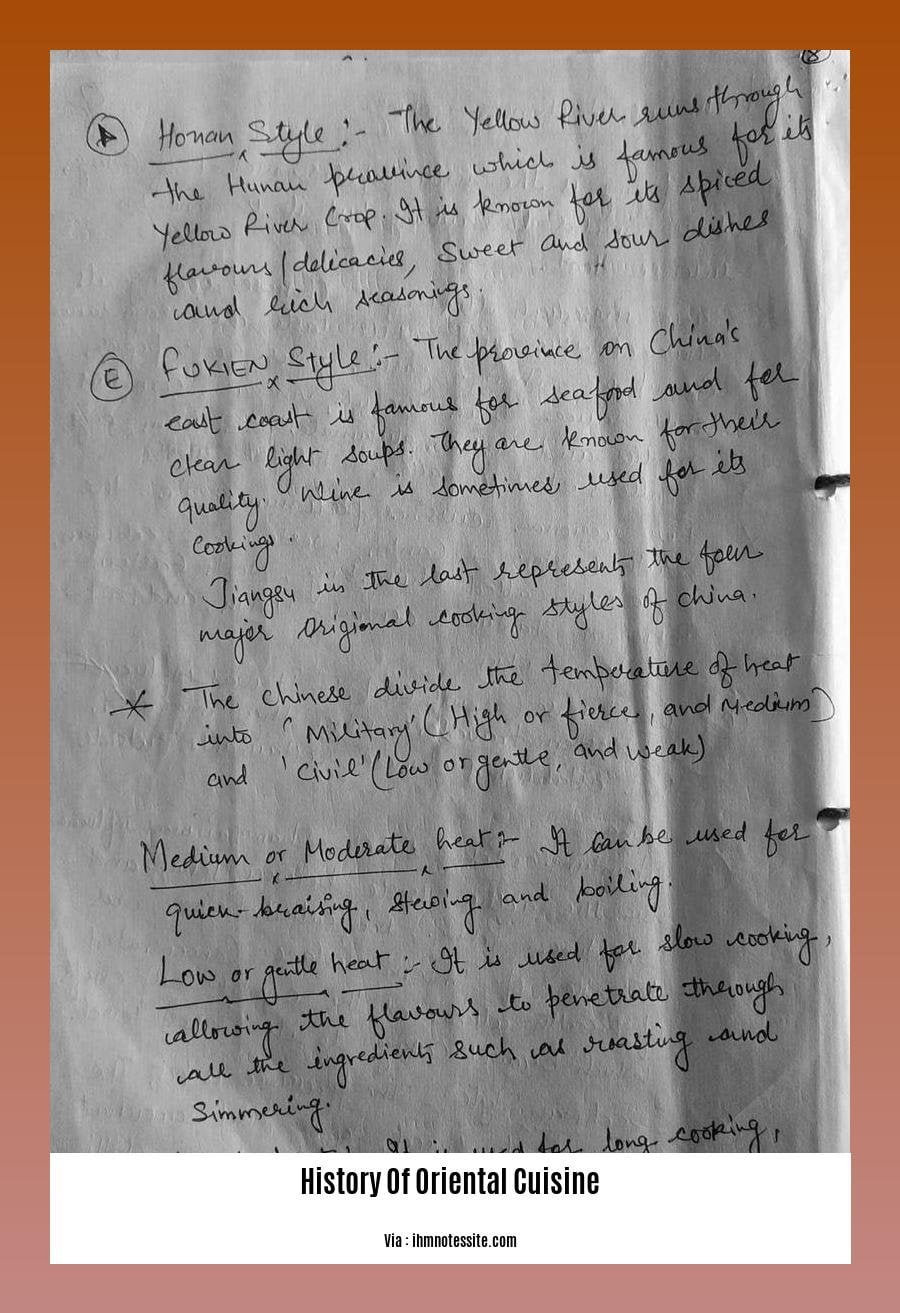 (8)
(A) Honan Style :- The Yellow River runs through
the Hunan province which is famous for its
Yellow River Crop. It is known for its spiced
flavours/delicacies, Sweet and Sour dishes
and rich seasonings.
(E) FUKIEN Style :- The province on China's
east coast is famous for seafood and for
clear light soups. They are known for their
quality. Wine is sometimes used for its
Cookings.
Jiangsu in the last represents the four
major Origional cooking styles of china.
* The Chinese divide the temperature of heat
into 'Military' (High or fierce, and Medium)
and 'Civil' (Low or gentle, and weak)
Medium or Moderate heat :- It can be used for
quick-braising, stewing and boiling.
Low or gentle heat :- It is used for slow cooking,
allowing the flavours to penetrate through
all the ingredients such as roasting and
Simmering.
It is used for long cooking,
History Of Oriental Cuisine
Via : ihmnotessite.com